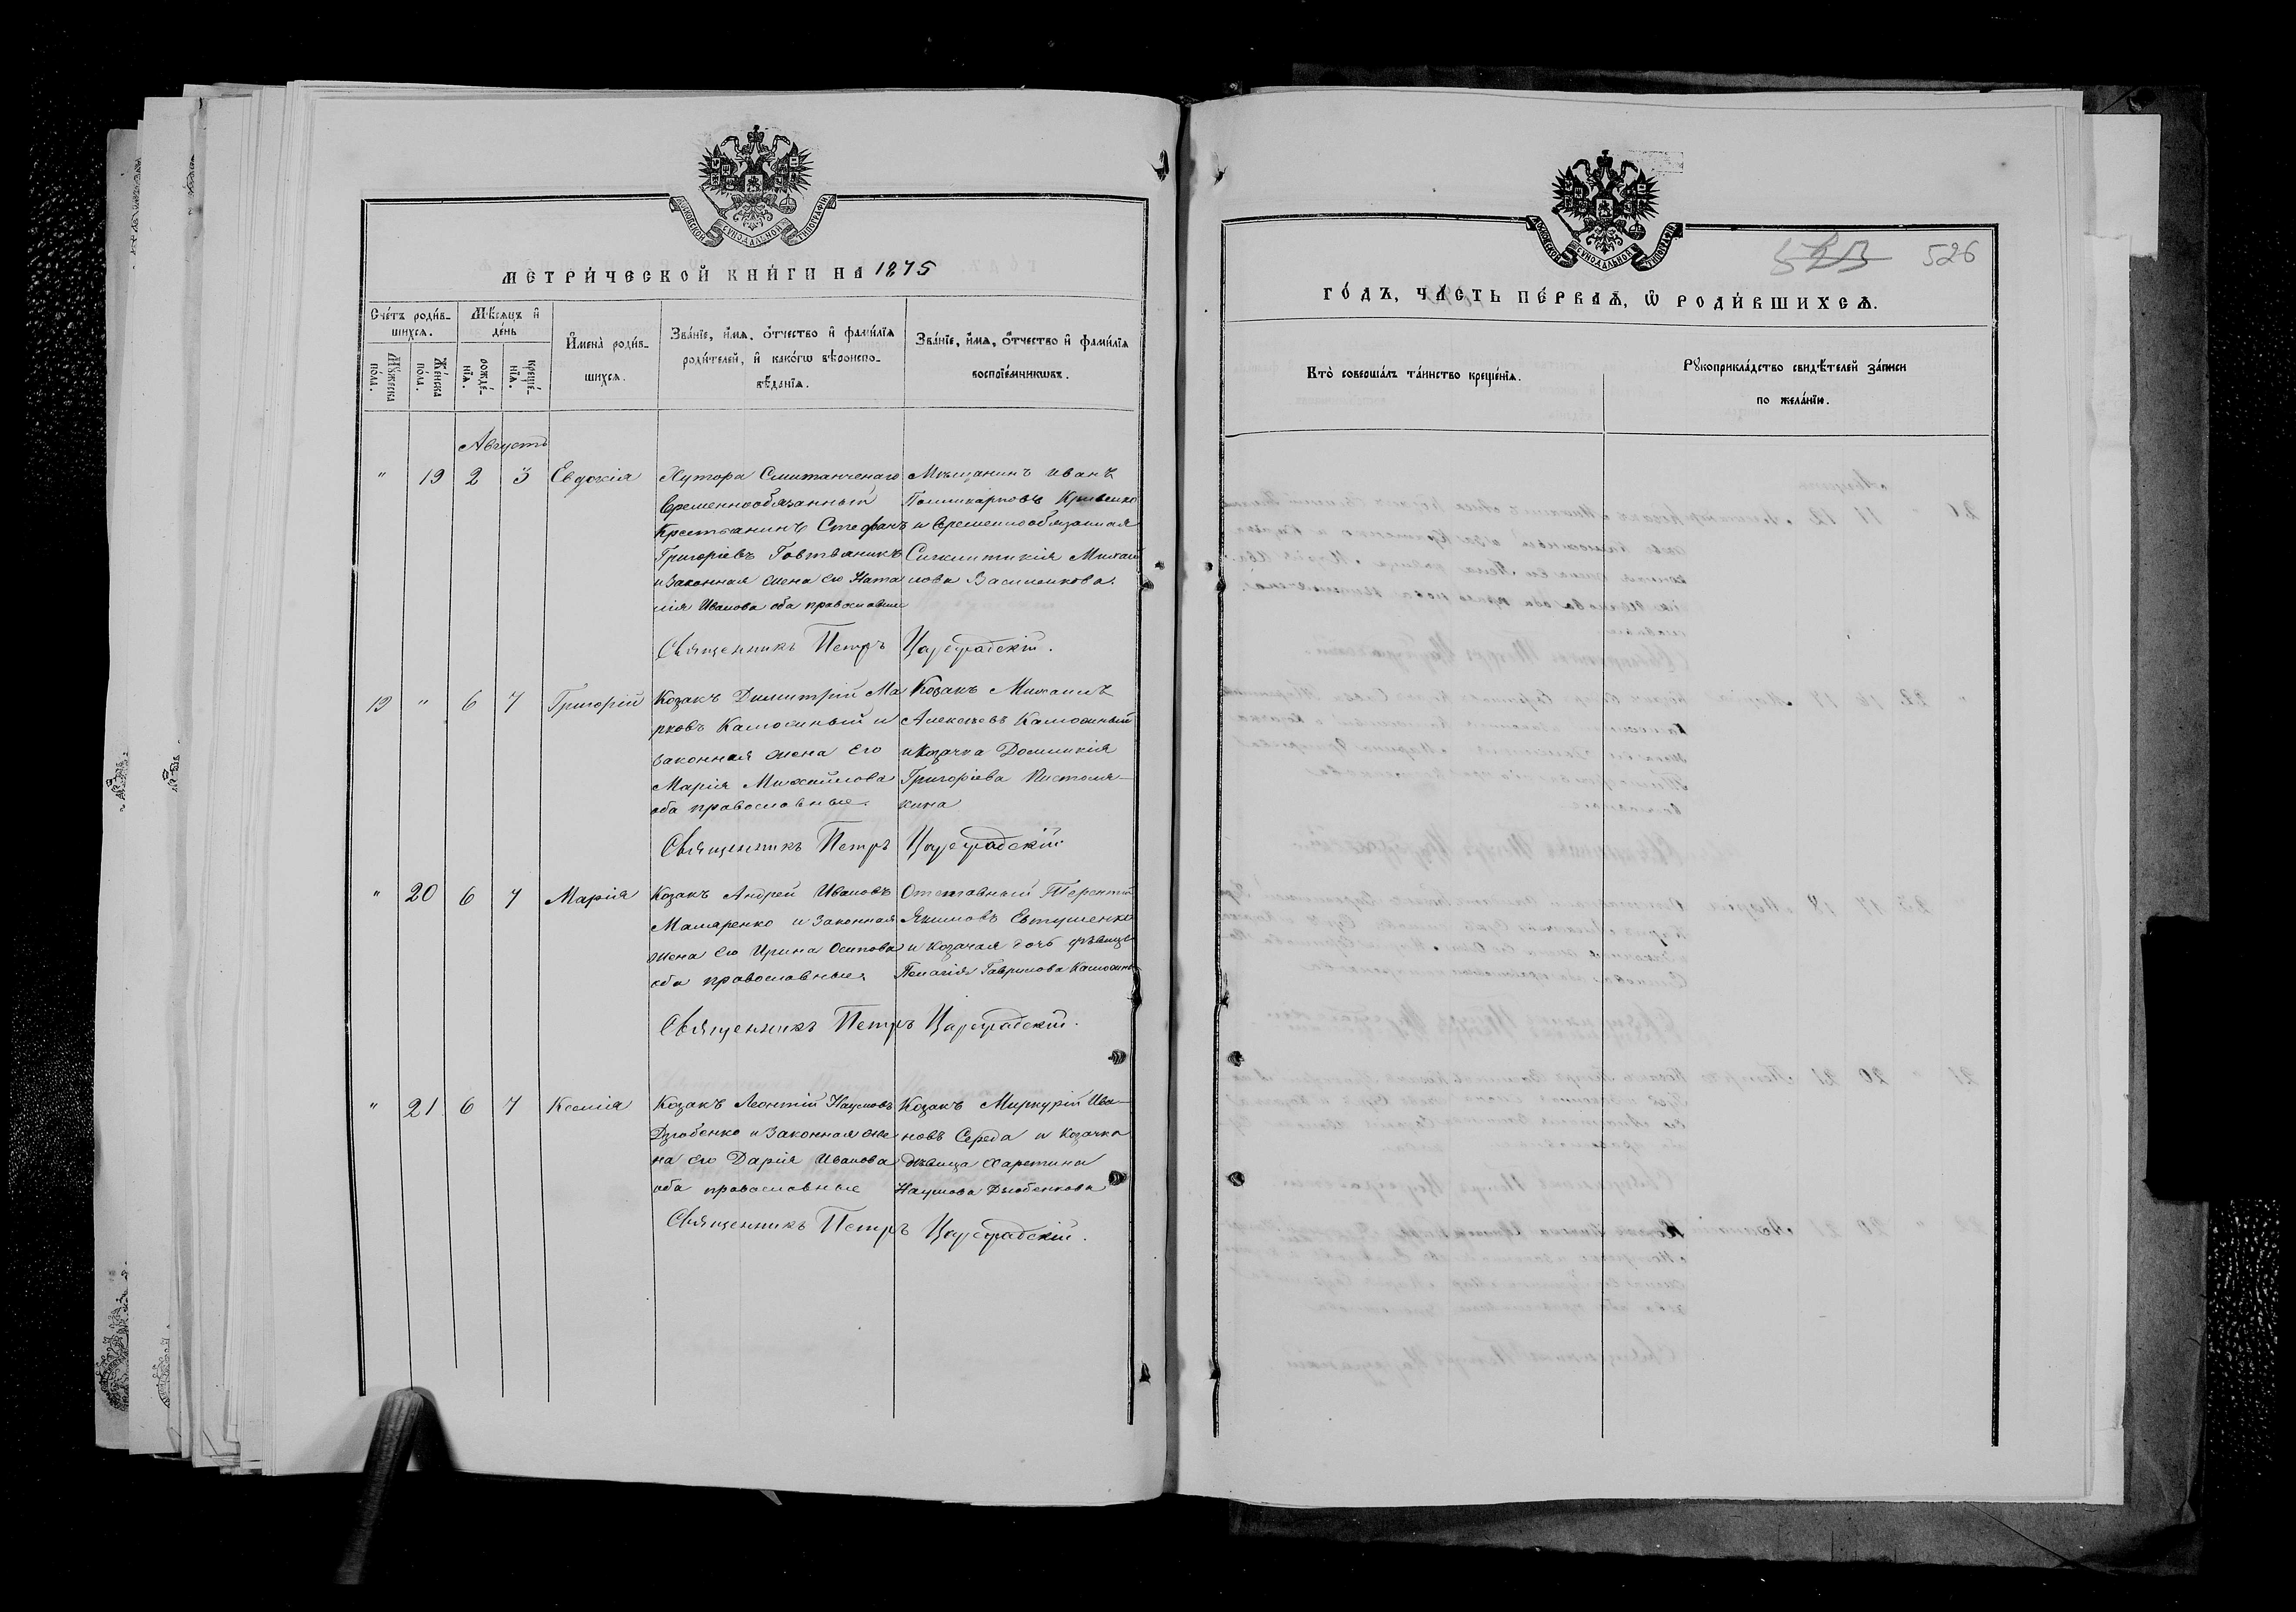 МОСКОВСКОЙ СѴНОДАЛЬНОЙ ТИПОГРАФІИ
МЕТРИ́ЧЕСКОЙ КНИ́ГИ НА 1875
Сче́тъ роди́в-
шихсѧ.
Мѣ́сѧцъ и҆
де́нь
Мꙋ́жеска
по́ла.
Же́нска
по́ла.
рожде́-
нїѧ.
креще́-
нїѧ.
И҆мена̀ роди́в-
шихсѧ.
Зва́нїе, и҆́мѧ, ѻ҆́тчество и҆ фами́лїѧ
роди́телей, и҆ како́гѡ вѣроиспо-
вѣ́данїѧ.
Зва́нїе, и҆́мѧ, ѻ҆́тчество и҆ фами́лїѧ
воспрїе́мникѡвъ.
Августъ
" 19 2 3 Евдокія
Хутора
Временнообязанный
Крестьянинъ Стефанъ
Григоріевъ
и законная жена его Ната
лія Иванова оба православны
Мѣщанинъ Иванъ
Поликарповъ Кривенко
и Временнообязанная
Синклитикія Михай
лова Василенкова.
Священникъ Петръ Цареградскій.
19 " 6 7 Григорій
Козакъ Димитрій Ма
рковъ Калюжный и
законная жена его
Марія Михайлова
оба православные.
Козакъ Михаилъ
Алексѣевъ Калюжный
и Козачка Домникія
Григоріева
кина
Священникъ Петръ Цареградскій
" 20 6 7 Марія
Козакъ Андрей Ивановъ
Маляренко и законная
жена его Ирина Осипова
оба православные.
Отставный Терентій
Якимовъ Евтушенко
и козачая дочь дѣвица
Пелагія Гаврилова Калюжна
Священникъ Петръ Цареградскій.
" 21 6 7 Ксенія
Козакъ Леонтій Наумовъ
Дзюбенко и законная же
на его Дарія Иванова
оба православные
Козакъ Меркурій Ива-
новъ Середа и Козачка
дѣвица Харитина
Наумова Дзюбенкова
Священникъ Петръ Цареградскій.
МОСКОВСКОЙ СѴНОДАЛЬНОЙ ТИПОГРАФІИ
526
ГО́ДЪ, ЧА́СТЬ ПЕ́РВАѦ, Ѽ РОДИ́ВШИХСѦ.
Кто̀ соверша́лъ та́инство креще́нїѧ.
Рꙋкоприкла́дство свидѣ́телей за́писи
по жела́нїю.